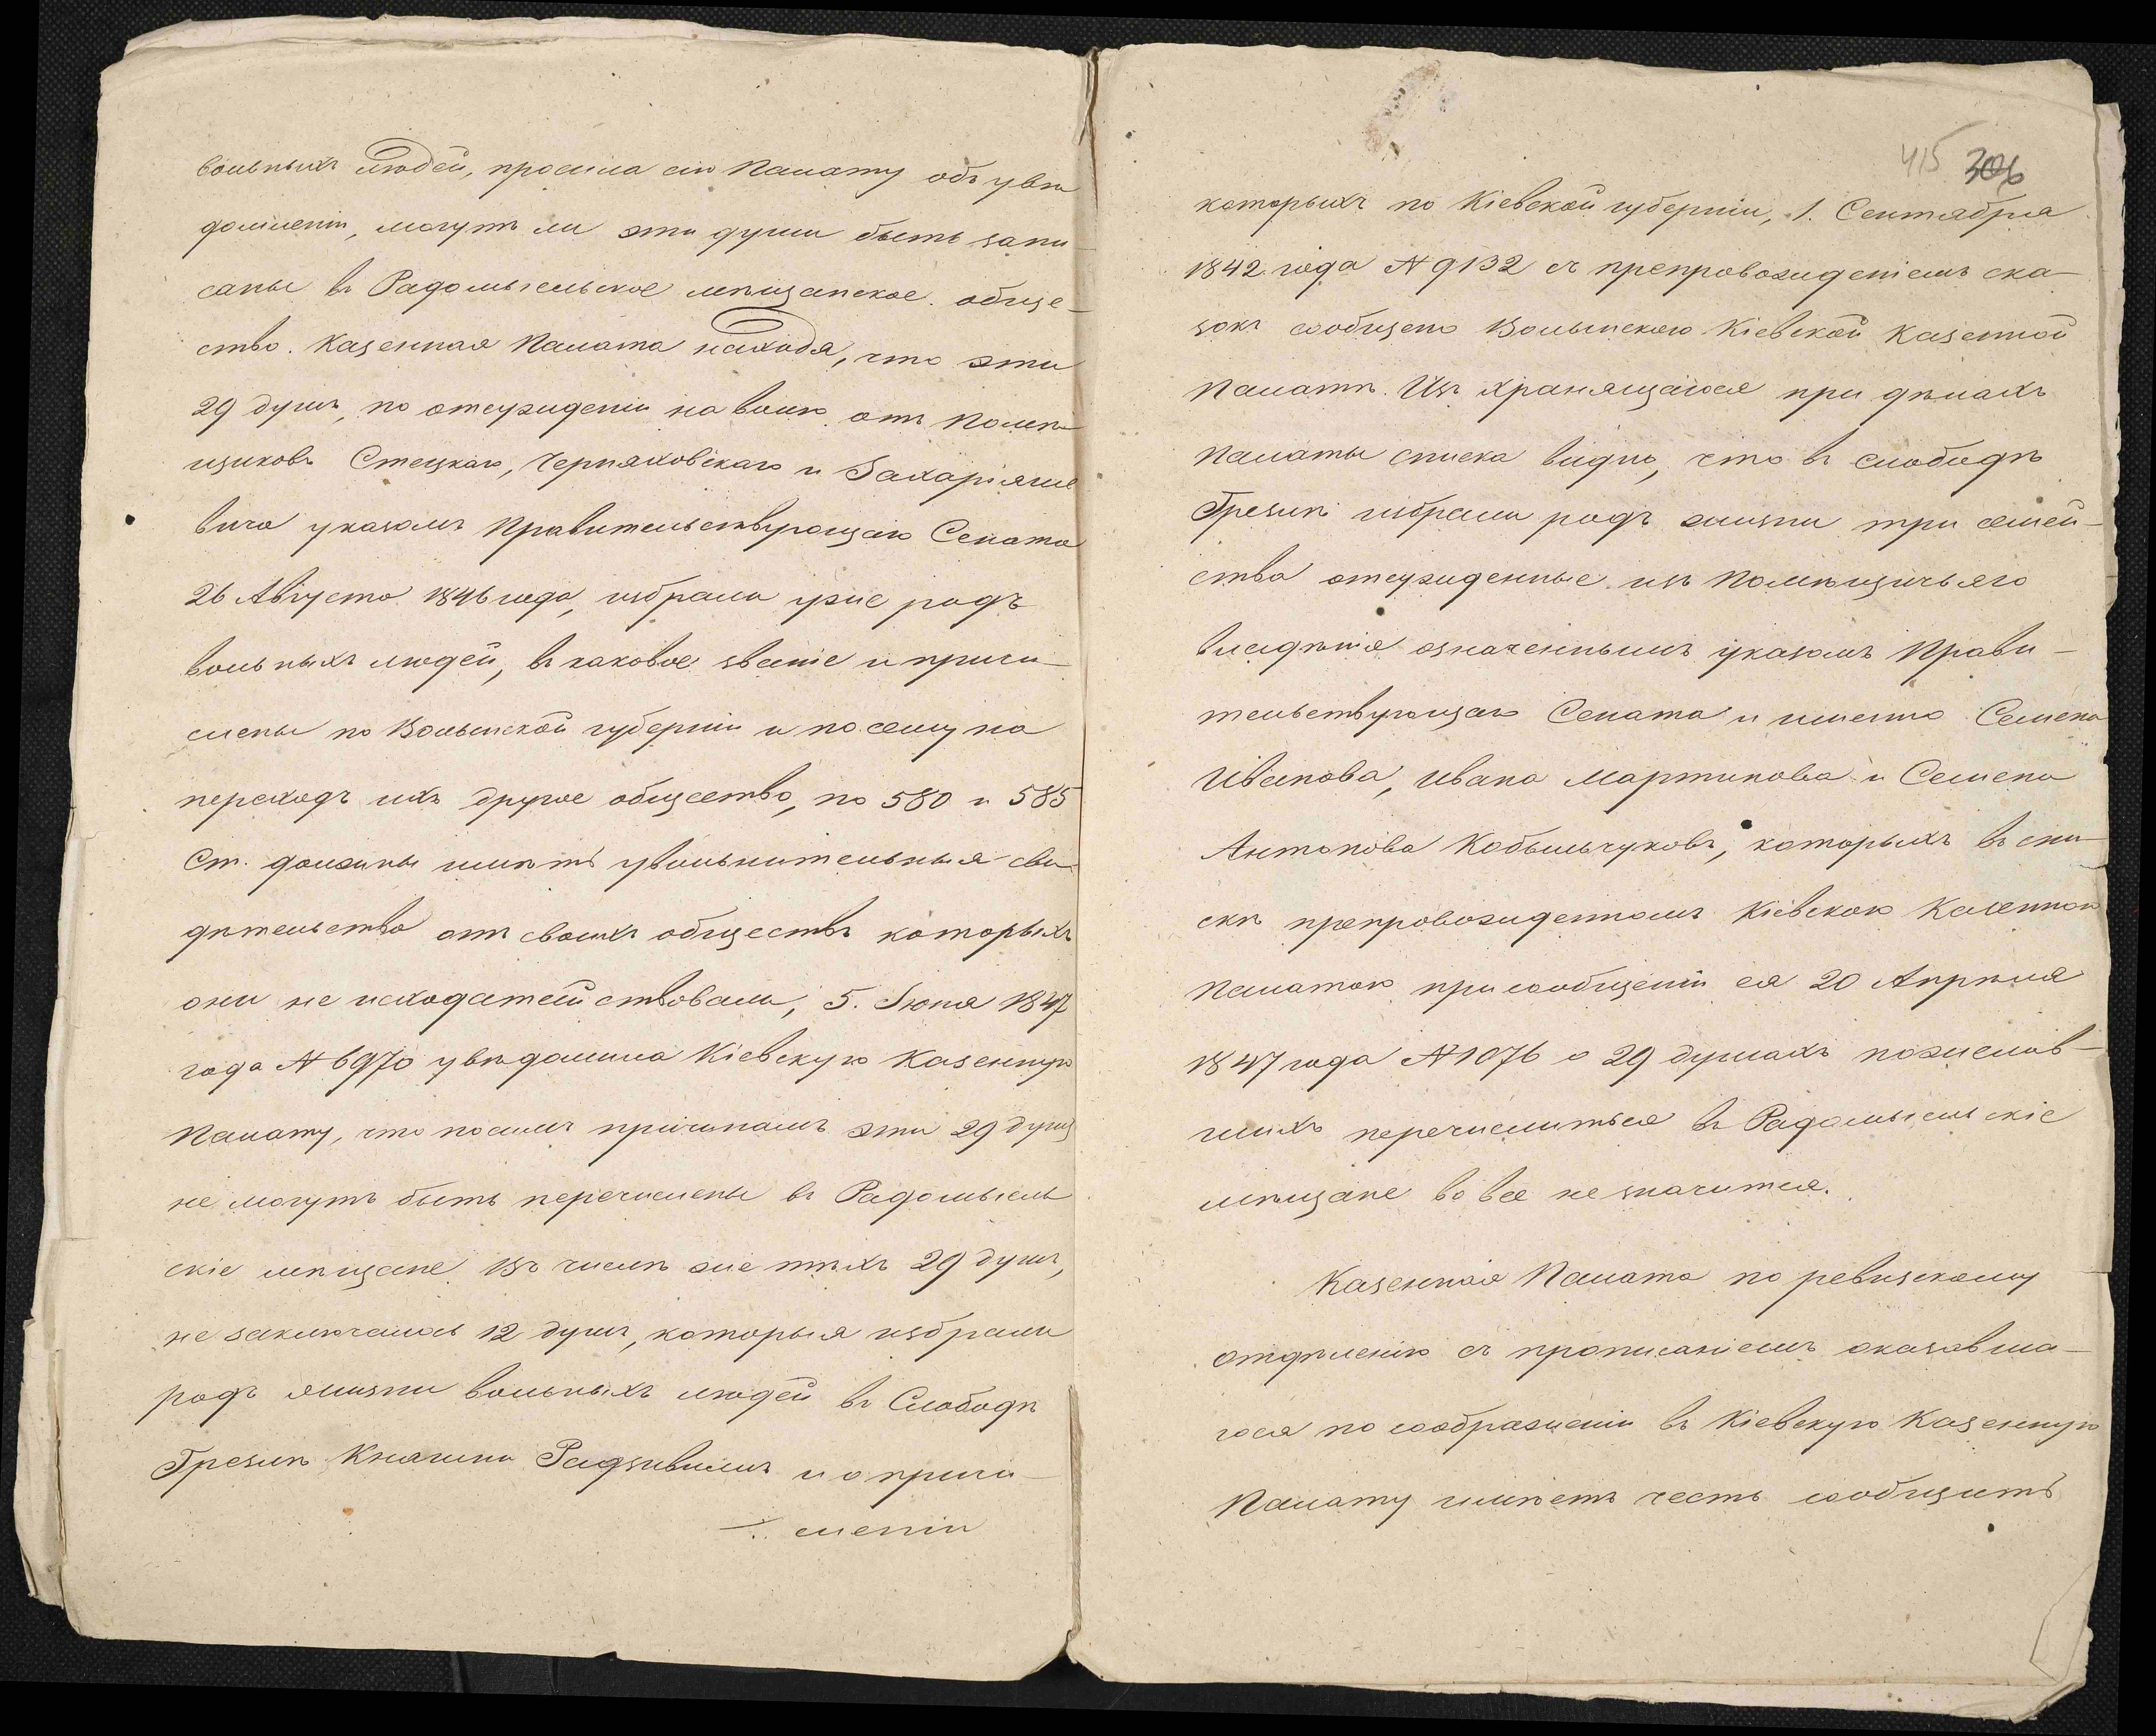 вольныхъ людей, просила сію Палату объ увѣ
домленіи, могутъ ли эти души быть запи-
саны въ Радомысльское мѣщанское обще-
ство. Казенная Палата находя, что эти
29 душъ, по отсужденіи на волю отъ Помѣ-
щиковъ Стецкаго, Черняховскаго и Захаріяше
вича указомъ Правительствующаго Сената
26 Августа 1846 года, избрали уже родъ
вольныхъ людей, въ каковое званіе и причи-
слены по Волынской губерніи и посему на
переходъ ихъ другое общество, по 580 и 585
Ст. должны имѣть увольнительныя сви-
дѣтельства отъ своихъ обществъ которыхъ
они не исходатействовали, 5. Іюня 1847
года № 6970 увѣдомила Кіевскую Казенную
Палату, что посимъ причинамъ эти 29 душъ
не могутъ быть перечислены въ Радомысль
скіе мѣщане. Въ числѣ же тѣхъ 29 душъ,
не заключалось 12 душъ, которыя избрали
родъ жизни вольныхъ людей въ Слободѣ
Грезлѣ Княгини Радзивилъ и о причи-
сленіи
415 306
которыхъ по Кіевской губерніи, 1. Сентября
1842 года № 9132 съ препровожденіемъ ска-
зокъ сообщено Волынскою Кіевской Казенной
Палатѣ. Изъ хранящагося при дѣлахъ
Палаты списка видно, что въ слободѣ
Грезлѣ избрали родъ жизни три семей-
ства отсужденные изъ Помѣщичьяго
владѣнія означеннымъ указомъ Прави-
тельствующаго Сената и именно Семена
Иванова, Ивана Мартинова и Семена
Антонова Кобыльчуковъ, которыхъ въ спи-
скѣ препровожденномъ Кіевскою Казенною
Палатою при сообщеніи ея 20 Апрѣля
1847 года № 1076 о 29 душахъ пожелав-
шихъ перечислиться въ Радомысльскіе
мѣщане во все не значится.
Казенная Палата по ревизскому
отдѣленію съ прописаніемъ оказавша-
гося по соображеніи въ Кіевскую Казенную
Палату имѣетъ честь сообщить